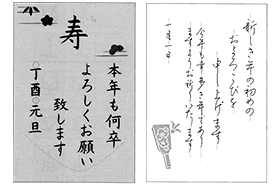 寿
本年も何卒
よろしくお願い
致します
丁酉○元旦
新しき年の初めの
およろこびを
申し上げます
今年も幸多き年であり
ますようお祈りいたします
一月一日